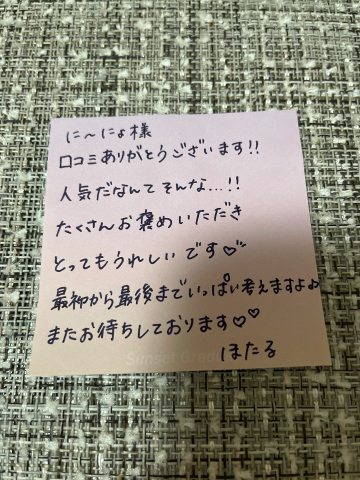 に〜にょ様
口コミありがとうございます!!
人気だなんてそんな…!!
たくさんお褒めいただき
とってもうれしいです♡
最初から最後までいっぱい考えますよ♪
またお待ちしております♡♡
ほたる